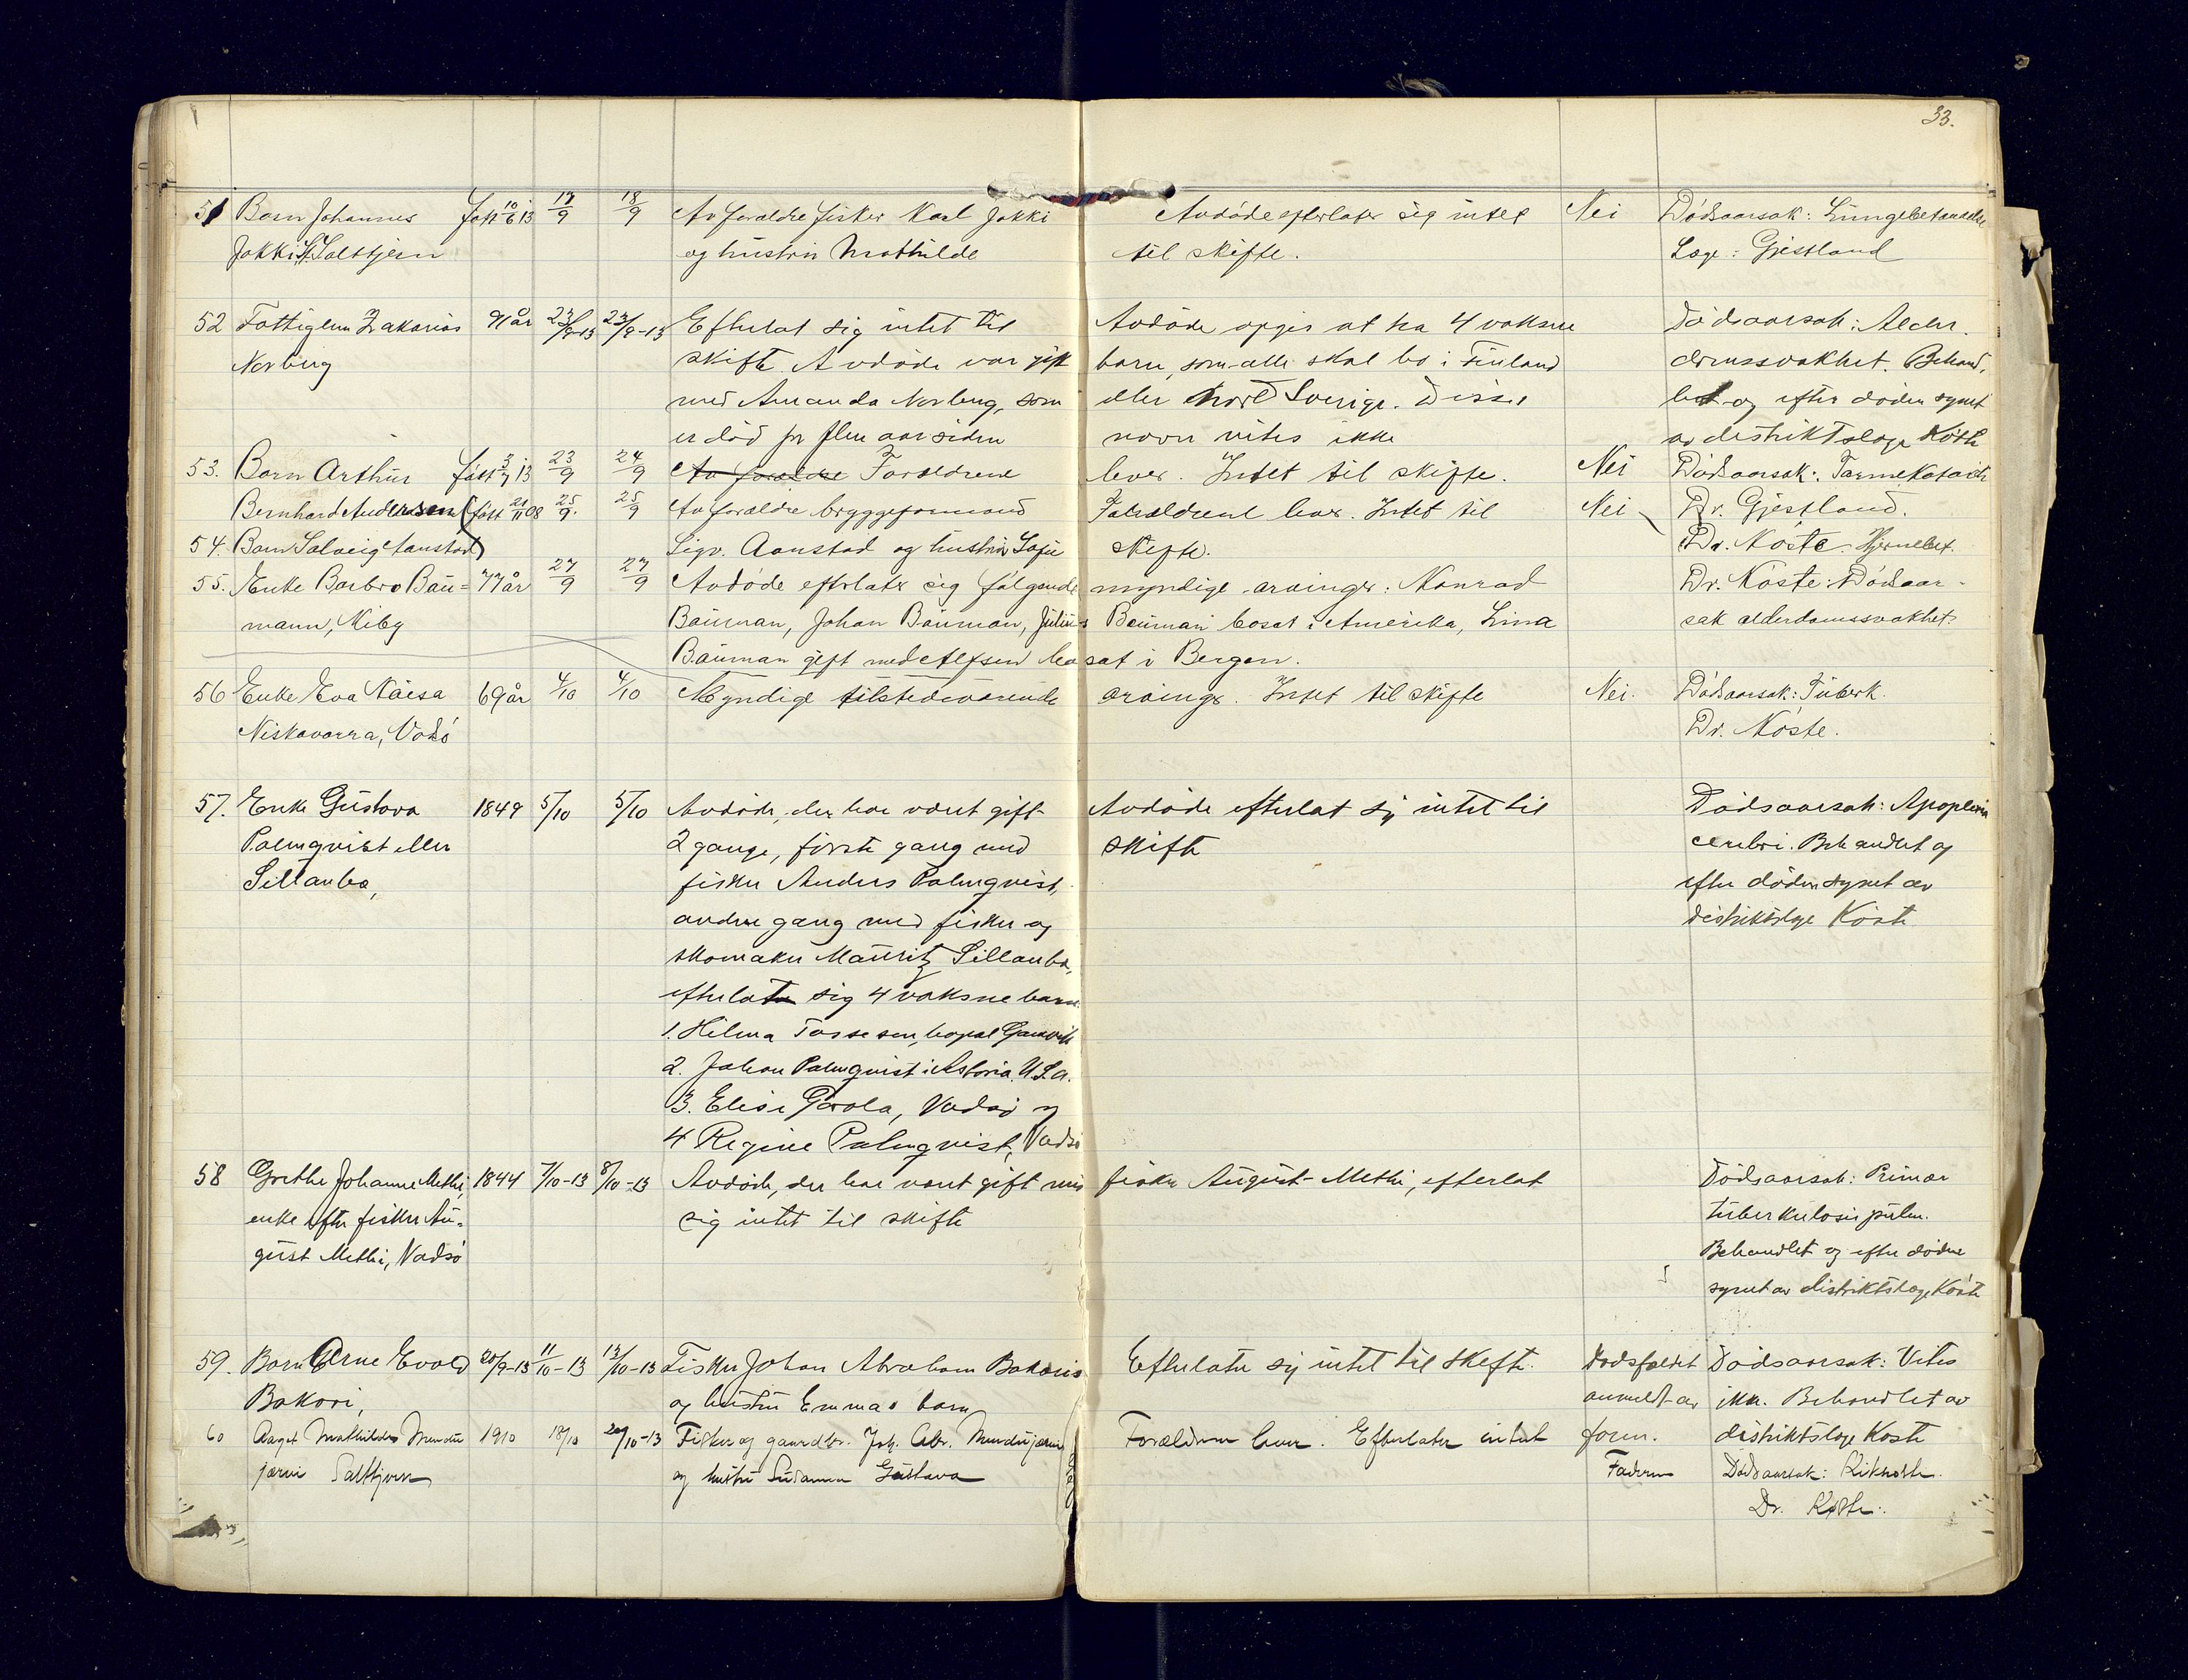 33.
51 Barn Johannes født 10/6 13 17/9 18/9 Av forældre fisker Karl Jokki Avdøde efterlater sig intet Nei Dødsaarsak: Lungebetændelse
Jokki, St. Salttjern og hustru Mathilde til skifte. Læge: Gjestland
52 Fattiglem Zakarias 91 år 23/9-13 23/9-13 Efterlat sig intet til Avdøde opgis at ha 4 voksne Dødsaarsak: Alder-
Norberg skifte. Avdøde var gift barn, som alle skal bo i Finland domssvakhet. Behand-
med Amanda Norberg, som eller Nord Sverige. Disses let og efter døden synet
er død for flere aar siden navn vites ikke av distriktslæge Köste
53. Barn Arthur født 3/7 13 23/9 24/9 Av forældre Forældrene lever. Intet til skifte. Nei Dødsaarsak: Tarmekatarrh
Bernhard Andersen (født 21/11 08 25/9. 25/9 Av forældre bryggeformand Forældrene lever. Intet til Nei Dr. Gjestland.
54. Barn Solveig Aanstad) Sigv. Aanstad og hustru Sofie skifte. Dr. Köste. Hjernebet.
55. Enke Barbro Bau= 77 år 27/9 27/9 Avdøde efterlater sig følgende myndige arvinger: Konrad Dr. Köste: Dødsaar-
mann, Kiby Bauman, Johan Bauman, Julius Bauman bosat i Amerika, Lina sak alderdomssvakhet.
Bauman gift med Alfsen bosat i Bergen.
56 Enke Eva Näesa 69 år 4/10 4/10 Myndige tilstedeværende arvinger. Intet til skifte Nei. Dødsaarsak: Tuberk.
Niskavarra, Vadsö Dr. Köste.
57. Enke Gustava 1849 5/10 5/10 Avdøde, der har været gift Avdøde efterlat sig intet til Dødsaarsak: Apoplexia
Palmqvist eller 2 gange, første gang med skifte cerebri. Behandlet og
Sillanba, fisker Anders Palmqvist, efter døden synet av
andre gang med fisker og distriktslæge Köste
skomaker Mauritz Sillanba,
efterlater sig 4 voksne barn:
1. Hilma Tossesen, bopæl Gamvik
2. Johan Palmqvist i Astoria. U.S.A.
3. Elise Parola, Vadsø og
4 Regine Palmqvist, Vadsø
58 Grethe Johanne Methi, 1844 7/10-13 8/10-13 Avdøde, der har været gift med fisker August Methi, efterlat Dødsaarsak: Primær
enke efter fisker Au- sig intet til skifte tuberkulosis pulm.
gust Methi, Vadsø Behandlet og efter døden
synet av distriktslæge Köste
59. Barn Arne Evald 20/9-13 11/10-13 13/10-13 Fisker Johan Abraham Bakaris Efterlater sig intet til skifte. Dødsfaldet Dødsaarsak: Vites
Bakari, og hustru Emmas barn anmeldt av ikke. Behandlet av
60 Aagot Mathilde Mundi 1910 18/10 20/10-13 Fisker og gaardbr. Joh. Abr. Mundijærvi Forældrene lever. Efterlater intet foren. distriktslæge Köste
jærvi Salttjern og hustru Susanna Gustava Faderen Dødsaarsak: Kikhoste.
Dr. Köste.